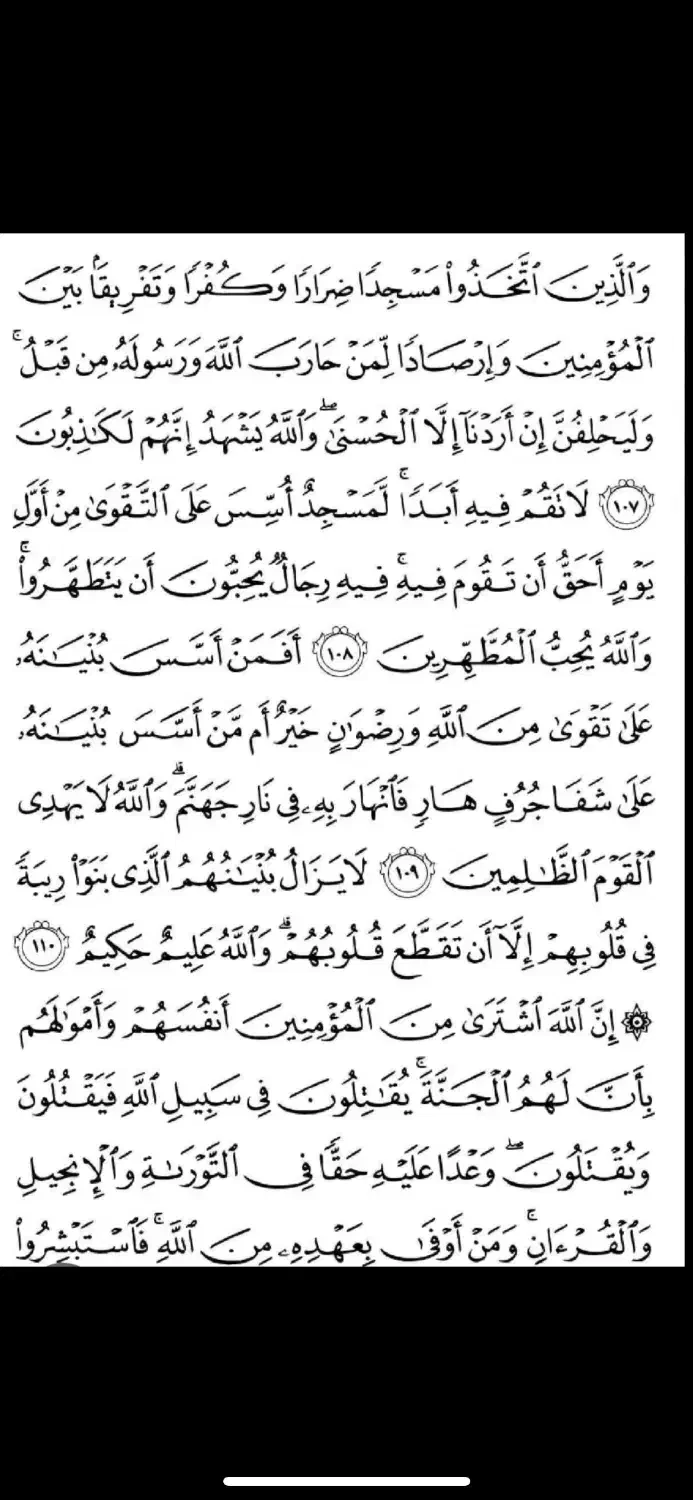 وَٱلَّذِينَ ٱتَّخَذُواْ مَسۡجِدٗا ضِرَارٗا وَكُفۡرٗا وَتَفۡرِيقَۢا بَيۡنَ
ٱلۡمُؤۡمِنِينَ وَإِرۡصَادٗا لِّمَنۡ حَارَبَ ٱللَّهَ وَرَسُولَهُۥ مِن قَبۡلُۚ
وَلَيَحۡلِفُنَّ إِنۡ أَرَدۡنَآ إِلَّا ٱلۡحُسۡنَىٰۖ وَٱللَّهُ يَشۡهَدُ إِنَّهُمۡ لَكَٰذِبُونَ
١٠٧ لَا تَقُمۡ فِيهِ أَبَدٗاۚ لَّمَسۡجِدٌ أُسِّسَ عَلَى ٱلتَّقۡوَىٰ مِنۡ أَوَّلِ
يَوۡمٍ أَحَقُّ أَن تَقُومَ فِيهِۚ فِيهِ رِجَالٞ يُحِبُّونَ أَن يَتَطَهَّرُواْۚ
وَٱللَّهُ يُحِبُّ ٱلۡمُطَّهِّرِينَ ١٠٨ أَفَمَنۡ أَسَّسَ بُنۡيَٰنَهُۥ
عَلَىٰ تَقۡوَىٰ مِنَ ٱللَّهِ وَرِضۡوَٰنٍ خَيۡرٌ أَم مَّنۡ أَسَّسَ بُنۡيَٰنَهُۥ
عَلَىٰ شَفَا جُرُفٍ هَارٖ فَٱنۡهَارَ بِهِۦ فِي نَارِ جَهَنَّمَۗ وَٱللَّهُ لَا يَهۡدِي
ٱلۡقَوۡمَ ٱلظَّٰلِمِينَ ١٠٩ لَا يَزَالُ بُنۡيَٰنُهُمُ ٱلَّذِي بَنَوۡاْ رِيبَةٗ
فِي قُلُوبِهِمۡ إِلَّآ أَن تَقَطَّعَ قُلُوبُهُمۡۗ وَٱللَّهُ عَلِيمٌ حَكِيمٌ ١١٠
۞ إِنَّ ٱللَّهَ ٱشۡتَرَىٰ مِنَ ٱلۡمُؤۡمِنِينَ أَنفُسَهُمۡ وَأَمۡوَٰلَهُم
بِأَنَّ لَهُمُ ٱلۡجَنَّةَۚ يُقَٰتِلُونَ فِي سَبِيلِ ٱللَّهِ فَيَقۡتُلُونَ
وَيُقۡتَلُونَۖ وَعۡدًا عَلَيۡهِ حَقّٗا فِي ٱلتَّوۡرَىٰةِ وَٱلۡإِنجِيلِ
وَٱلۡقُرۡءَانِۚ وَمَنۡ أَوۡفَىٰ بِعَهۡدِهِۦ مِنَ ٱللَّهِۚ فَٱسۡتَبۡشِرُواْ